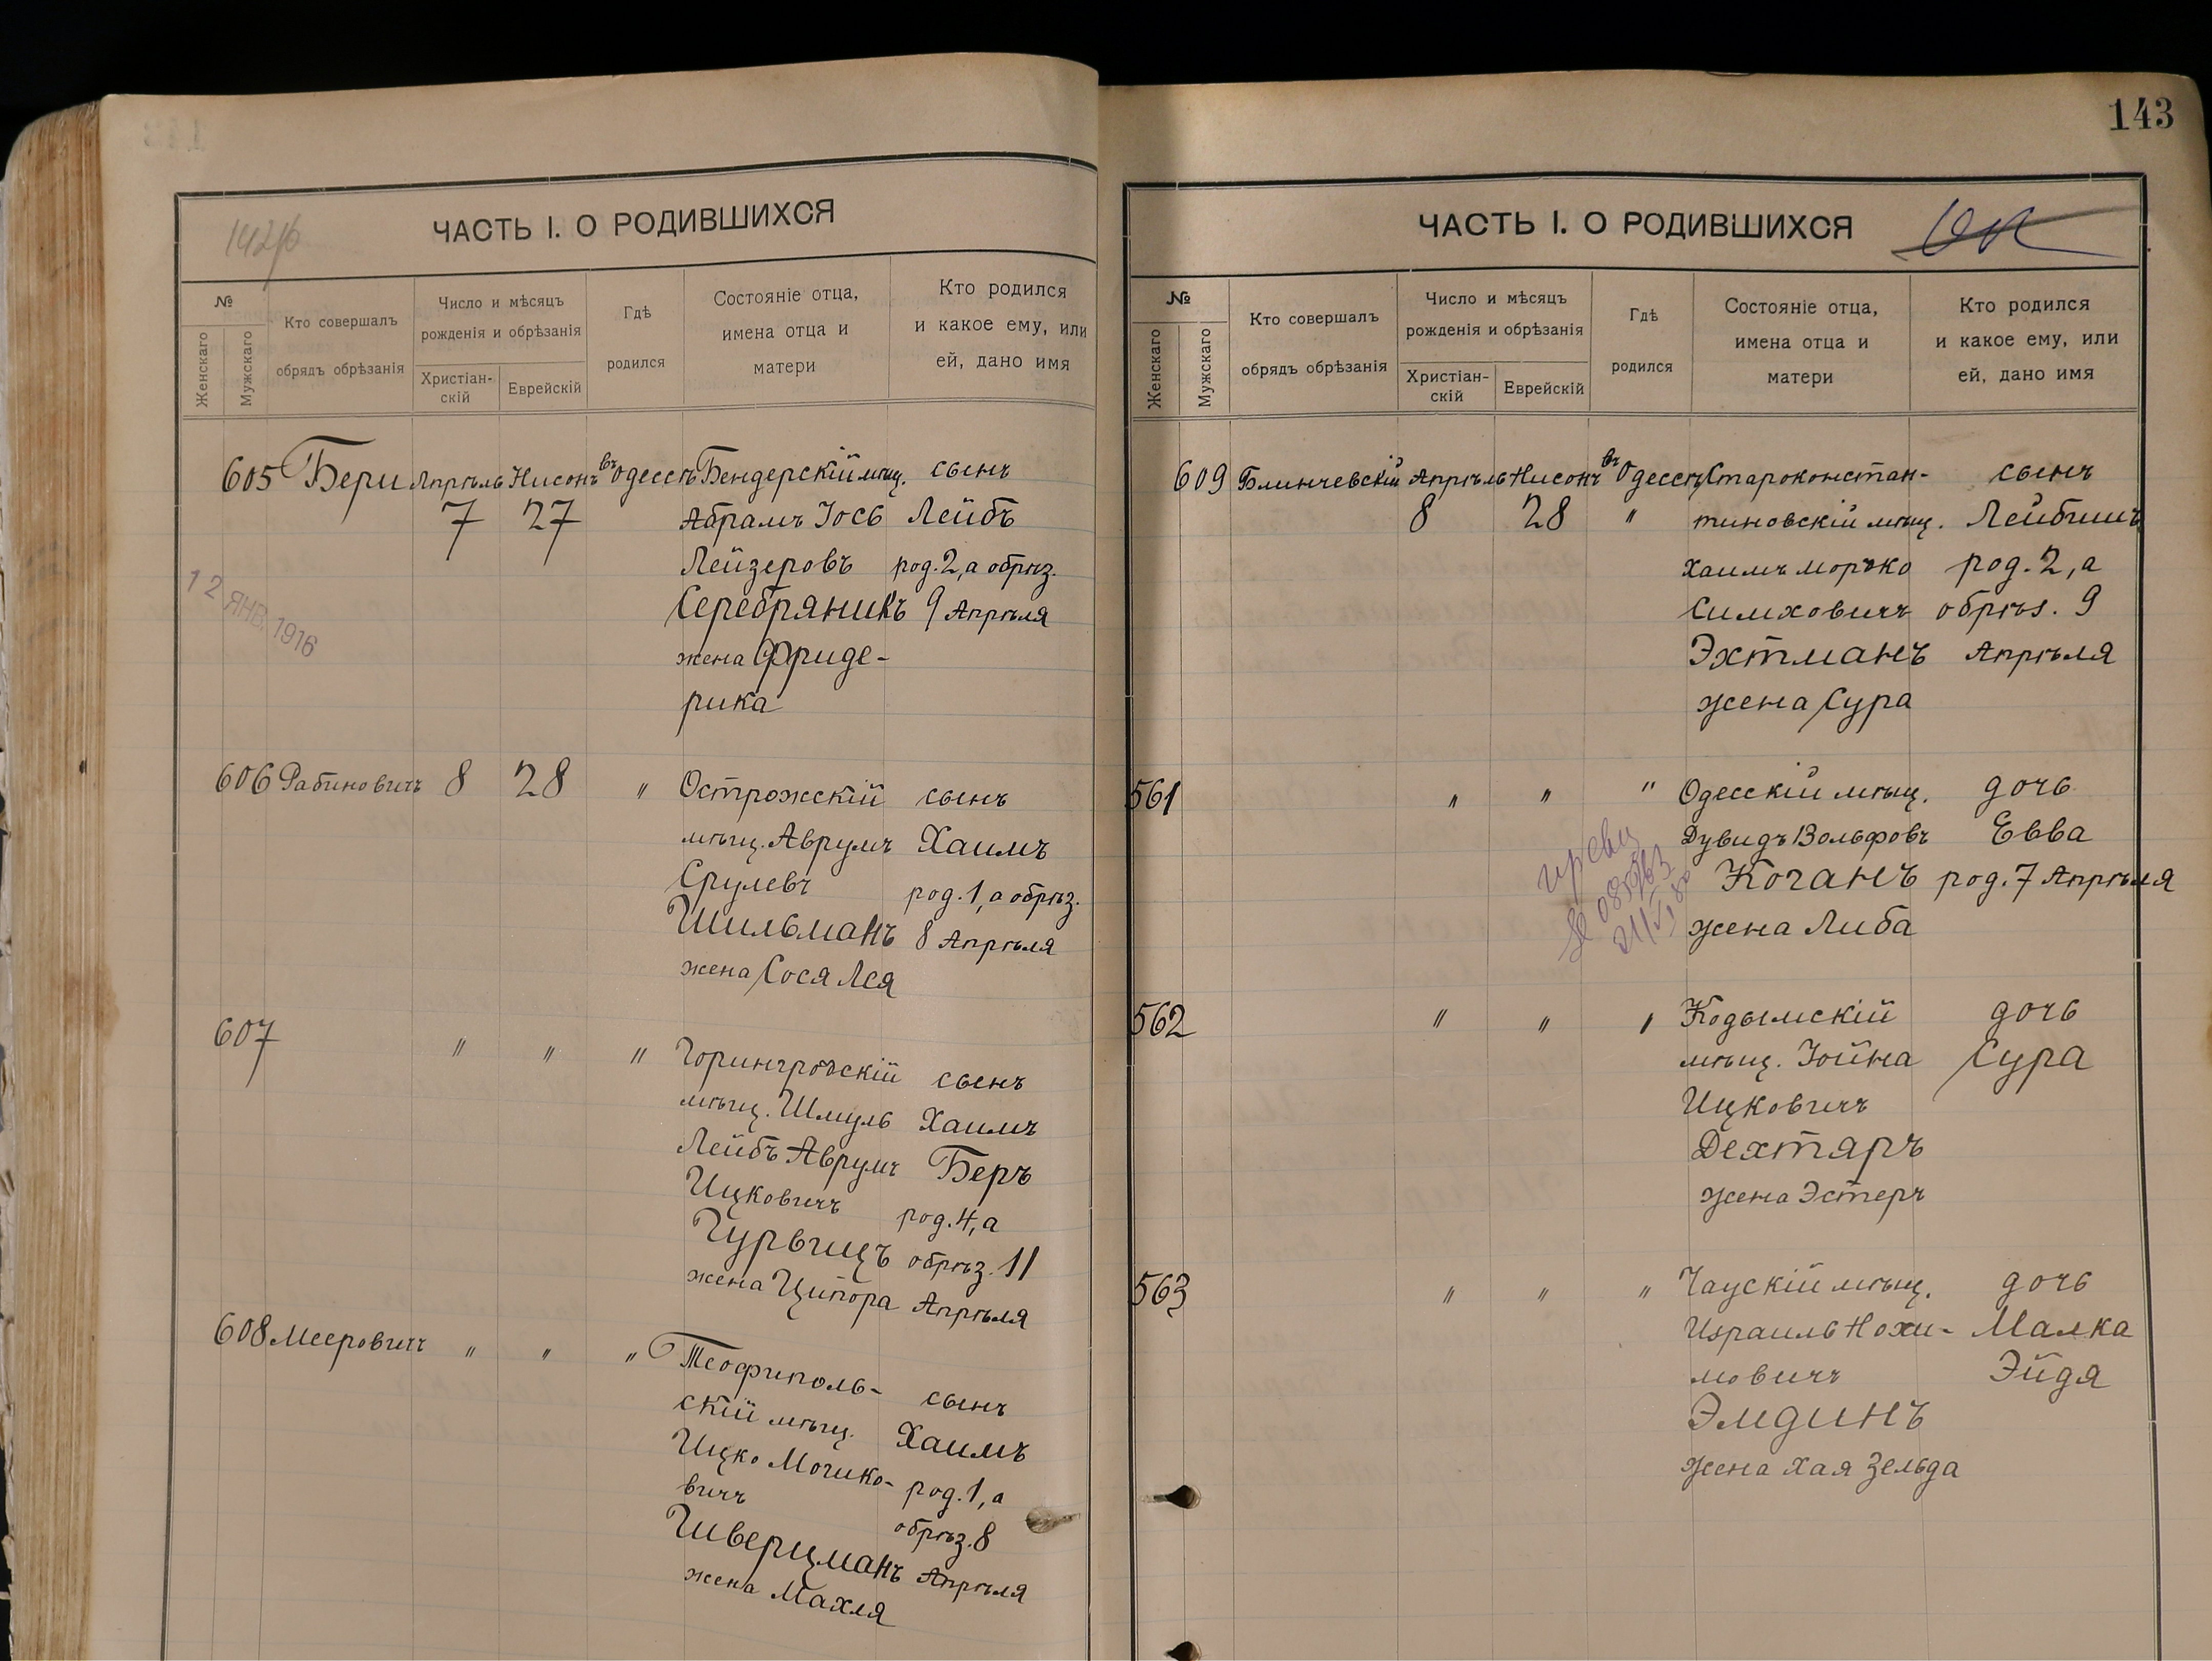 143
142 об
ЧАСТЬ I. О РОДИВШИХСЯ
№
Женскаго
Мужскаго
Кто совершалъ
обрядъ обрѣзанія
Число и мѣсяцъ
рожденія и обрѣзанія
Христіан-
скій
Еврейскій
Гдѣ
родился
Состояніе отца,
имена отца и
матери
Кто родился
и какое ему, или
ей, дано имя
605 Бери Апрѣль Нисонъ въ Одессѣ Бендерскій мѣщ. сынъ
7 27 Абрамъ Іось Лейбъ
Лейзеровъ род. 2, а обрѣз.
12 ЯНВ. 1916
Серебряникъ 9 Апрѣля
жена Фриде-
рика
606 Рабиновичъ 8 28 " Острожскій сынъ
мѣщ. Аврумъ Хаимъ
Срулевъ род. 1, а обрѣз.
Шильманъ 8 Апрѣля
жена Сося Лея
607 " " " Горингродскій сынъ
мѣщ. Шмуль Хаимъ
Лейбъ Аврумъ Беръ
Ицковичъ род. 4, а
Гурвицъ обрѣз. 11
жена Ципора Апрѣля
608 Мееровичъ " " " Теофиполь- сынъ
скій мѣщ. Хаимъ
Ицко Мошко- род. 1, а
вичъ обрѣз. 8
Шверцманъ Апрѣля
жена Махля
ЧАСТЬ I. О РОДИВШИХСЯ
№
Женскаго
Мужскаго
Кто совершалъ
обрядъ обрѣзанія
Число и мѣсяцъ
рожденія и обрѣзанія
Христіан-
скій
Еврейскій
Гдѣ
родился
Состояніе отца,
имена отца и
матери
Кто родился
и какое ему, или
ей, дано имя
609 Блинчевскій Апрѣль Нисонъ въ Одессѣ Староконстан- сынъ
8 28 " тиновскій мѣщ. Лейбишъ
Хаимъ Мордко род. 2, а
Симховичъ обрѣз. 9
Эхтманъ Апрѣля
жена Сура
561 " " " Одесскій мѣщ. дочь
Дувидъ Вольфовъ Евва
Коганъ род. 7 Апрѣля
жена Либа
562 " " " Кодымскій дочь
мѣщ. Іойна Сура
Ицковичъ
Дехтяръ
жена Эстеръ
563 " " " Чаускій мѣщ. дочь
Израиль Нохи- Малка
мовичъ Эйдя
Элидинъ
жена Хая Зельда